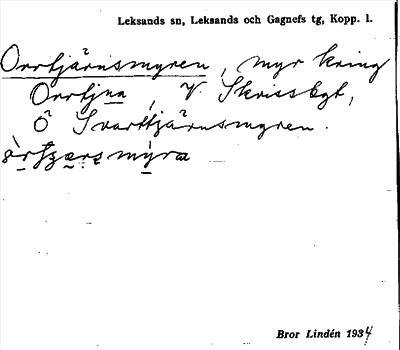 Leksands sn, Leksands och Gagnefs tg, Kopp. l.
Orrtjärnsmyren, myr kring
Orrtjnn, V. Skrissbgt,
Ö Svarttjärnsmyren.
Bror Lindén 1934